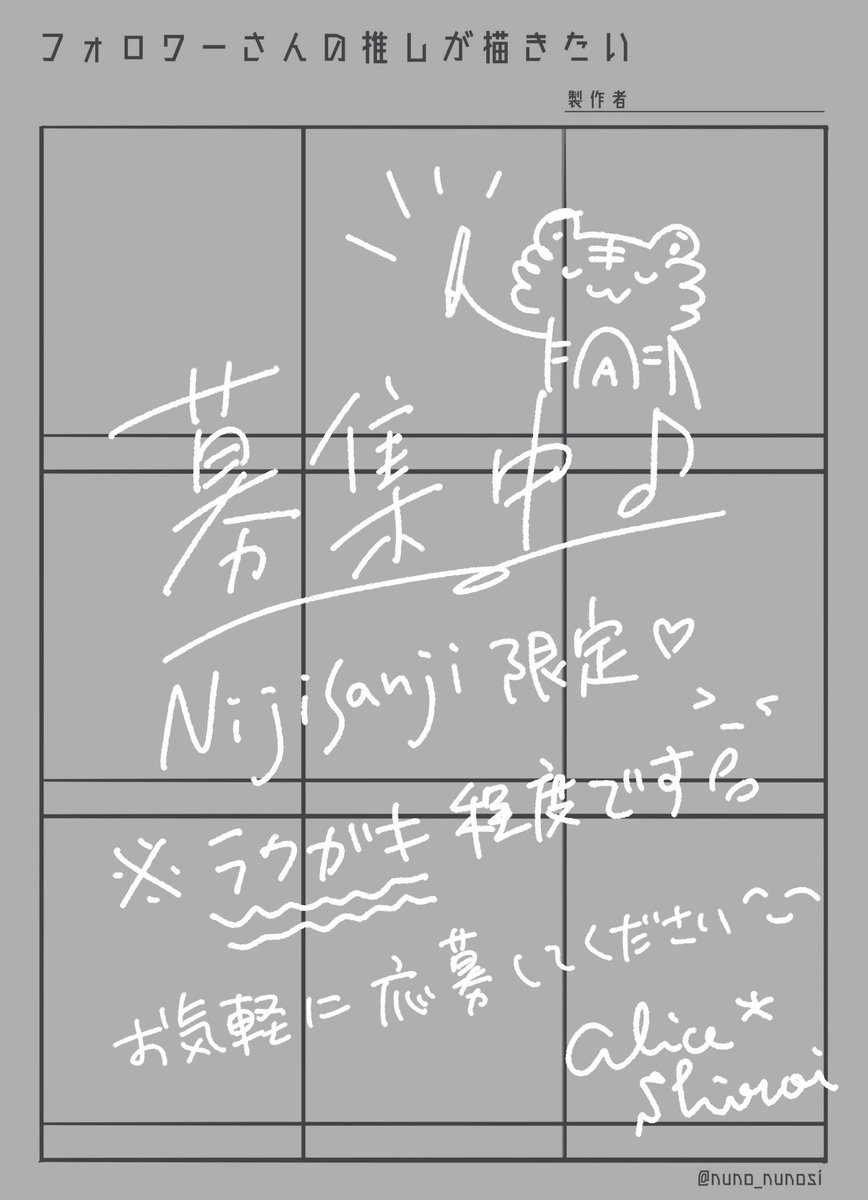 フォロワーさんの推しが描きたい
製作者
A
募集中♪
Nijisanji 限定♡
※ラクガキ程度です
お気軽に応募してください
Alice*
Shiroi
@nuno_nunosi